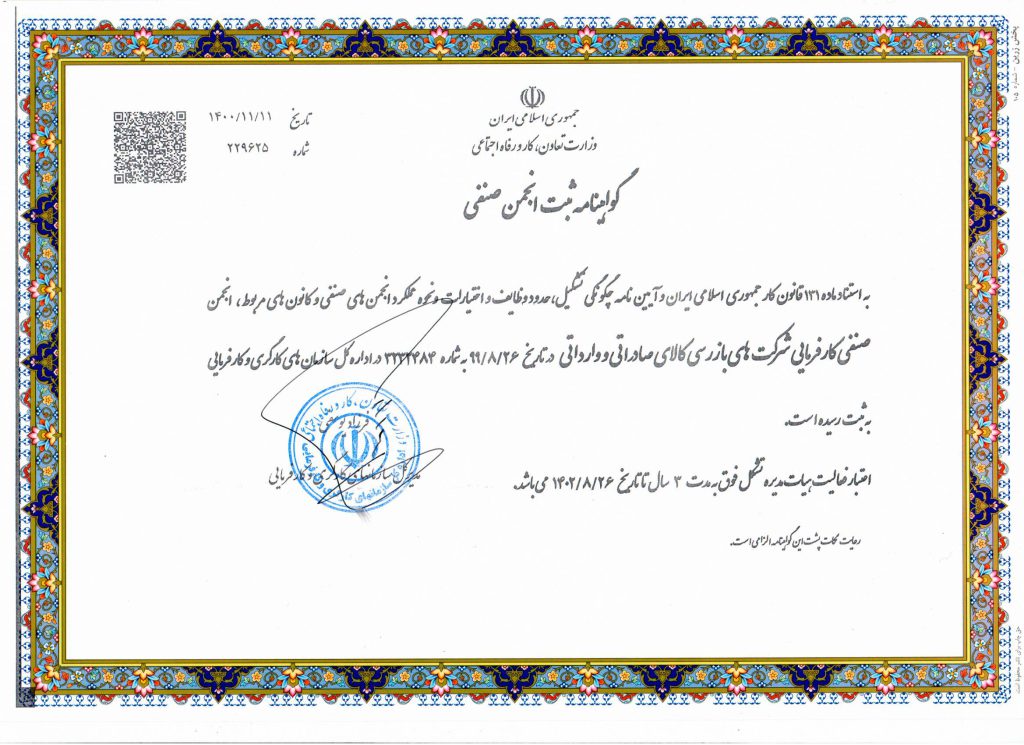 جمهوری اسلامی ایران
وزارت تعاون، کار و رفاه اجتماعی
تاریخ ۱۴۰۰/۱۱/۱۱
شماره ۲۲۹۶۲۵
گواهینامه ثبت انجمن صنفی
به استناد ماده ۱۳۱ قانون کار جمهوری اسلامی ایران و آیین نامه چگونگی تشکیل، حدود وظایف و اختیارات و نحوه عملکرد انجمن های صنفی و کانون های مربوط، انجمن
صنفی کارفرمایی شرکت های بازرسی کالای صادراتی و وارداتی در تاریخ ۹۹/۸/۲۶ به شماره ۳۲۳۲۴۸۴ در اداره کل سازمان های کارگری و کارفرمایی
به ثبت رسیده است.
اعتبار فعالیت هیات مدیره تشکل فوق به مدت ۳ سال تا تاریخ ۱۴۰۲/۸/۲۶ می باشد.
مدیرکل سازمانهای کارگری و کارفرمایی
رعایت نکات پشت این گواهینامه الزامی است.